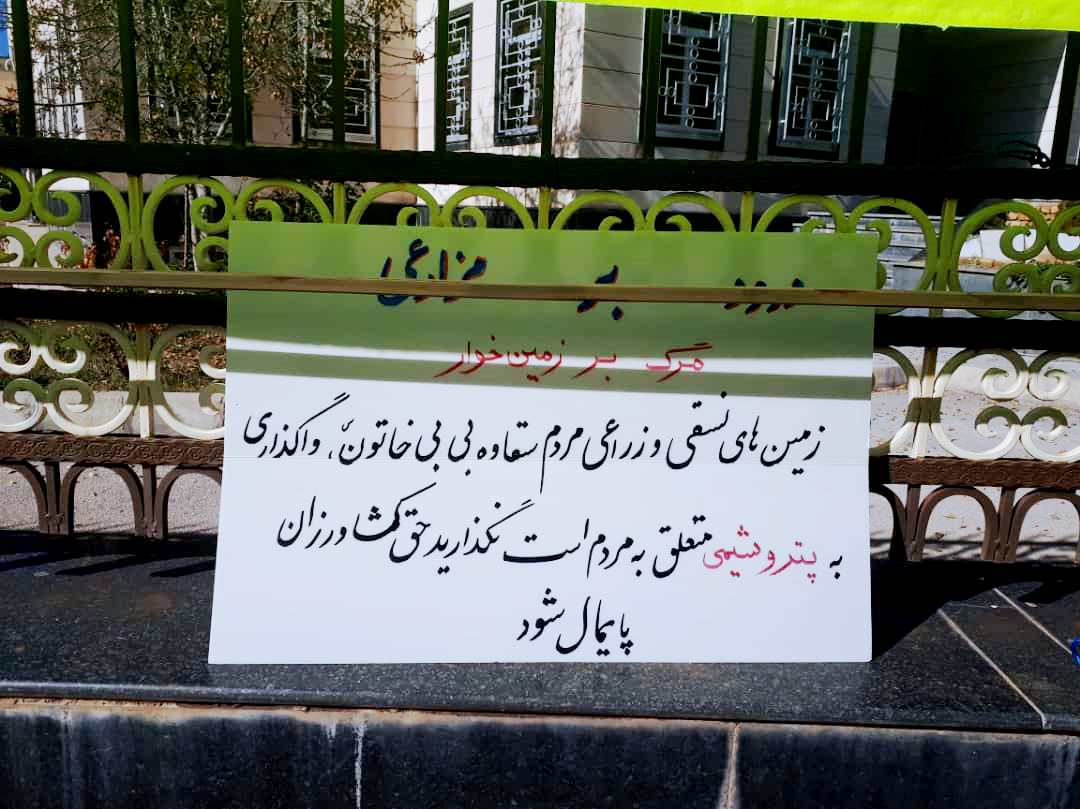 درود بر مزارعی
مرگ بر زمین خوار
زمین های نسقی و زراعی مردم ستقاوه بی بی خاتون، واگذاری
به پتروشیمی متعلق به مردم است نگذارید حق کشاورزان
پایمال شود